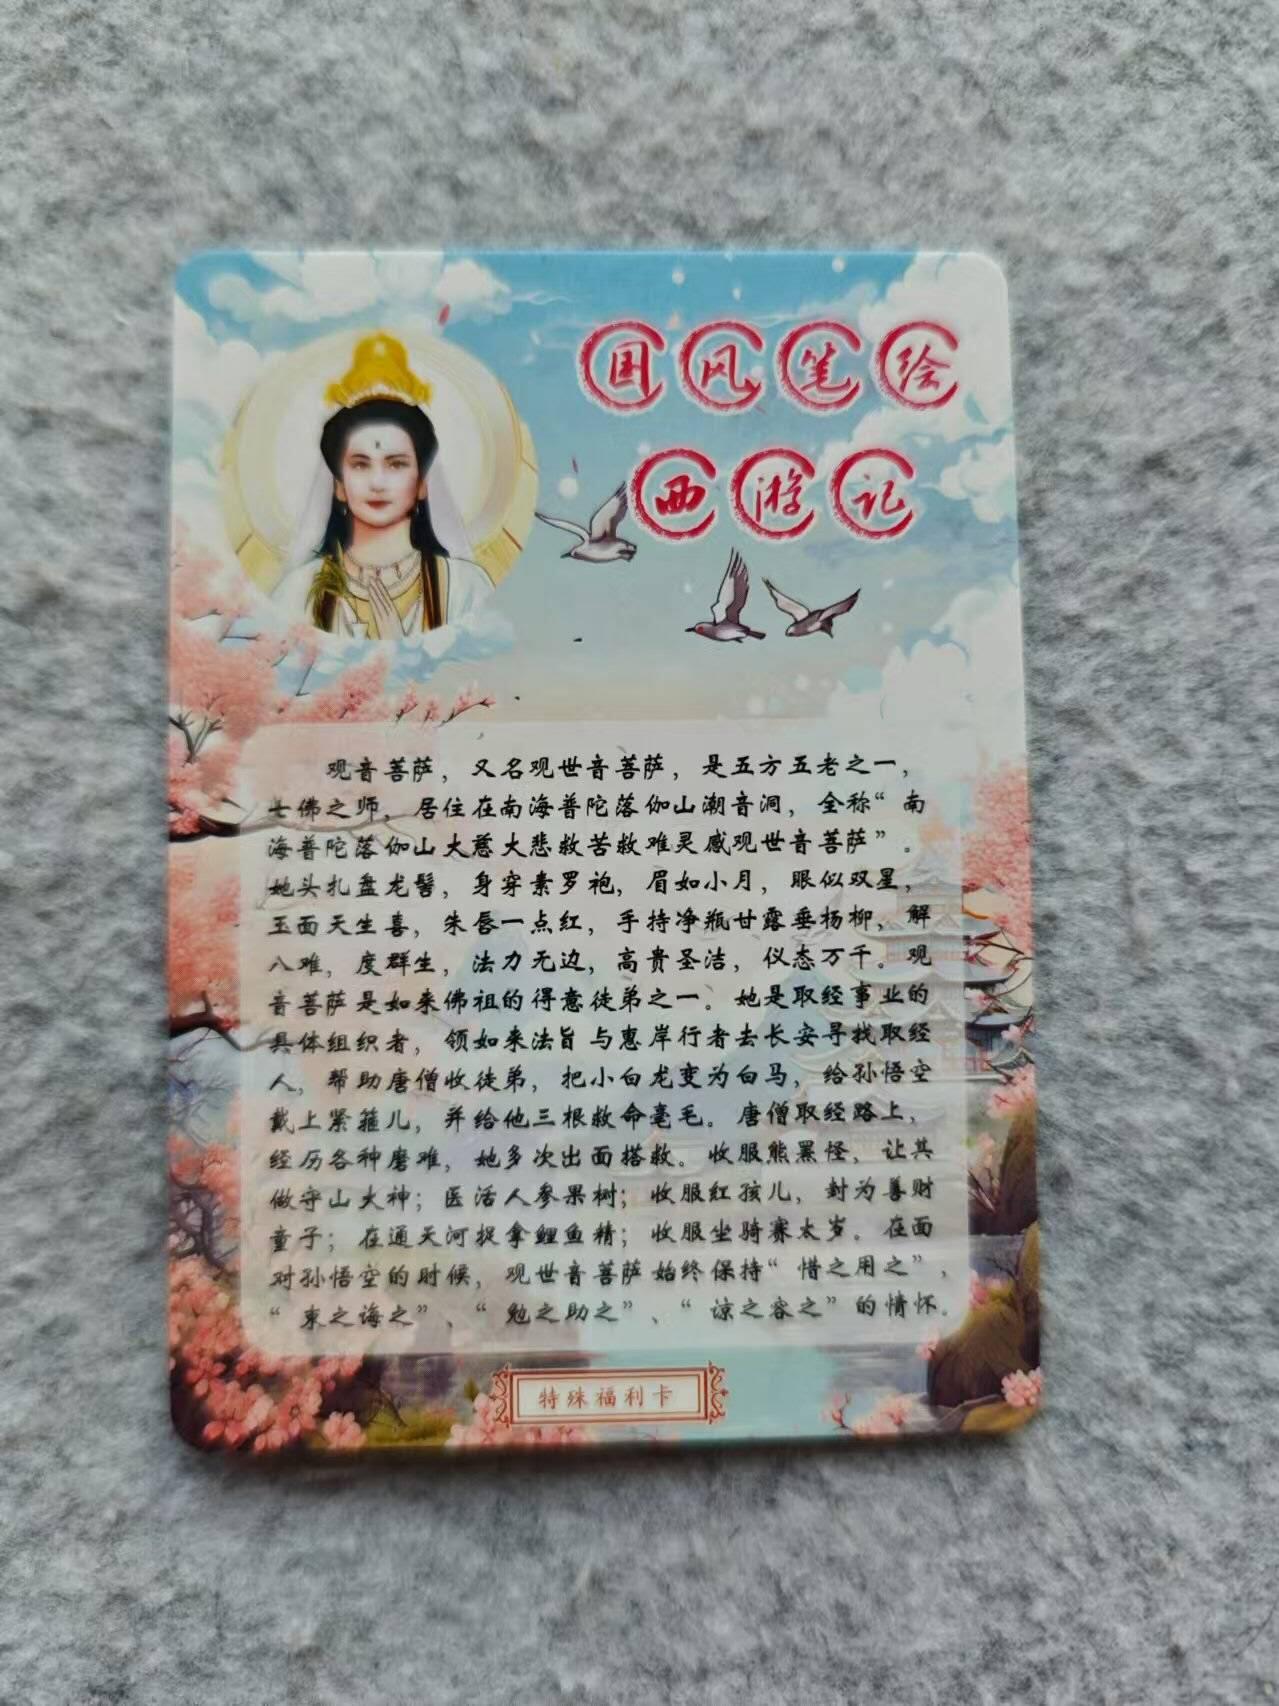 国风笔绘
西游记
观音菩萨，又名观世音菩萨，是五方五老之一，
七佛之师，居住在南海普陀落伽山潮音洞，全称“南
海普陀落伽山大慈大悲救苦救难灵感观世音菩萨”。
她头扎盘龙髻，身穿素罗袍，眉如小月，眼似双星，
玉面天生喜，朱唇一点红，手持净瓶甘露垂杨柳，解
八难，度群生，法力无边，高贵圣洁，仪态万千。观
音菩萨是如来佛祖的得意徒弟之一。她是取经事业的
具体组织者，领如来法旨与惠岸行者去长安寻找取经
人，帮助唐僧收徒弟，把小白龙变为白马，给孙悟空
戴上紧箍儿，并给他三根救命毫毛。唐僧取经路上，
经历各种磨难，她多次出面搭救。收服熊黑怪，让其
做守山大神；医活人参果树；收服红孩儿，封为善财
童子；在通天河捉拿鲤鱼精；收服坐骑赛太岁。在面
对孙悟空的时候，观世音菩萨始终保持“惜之用之”、
“束之诲之”、“勉之助之”、“谅之容之”的情怀。
特殊福利卡